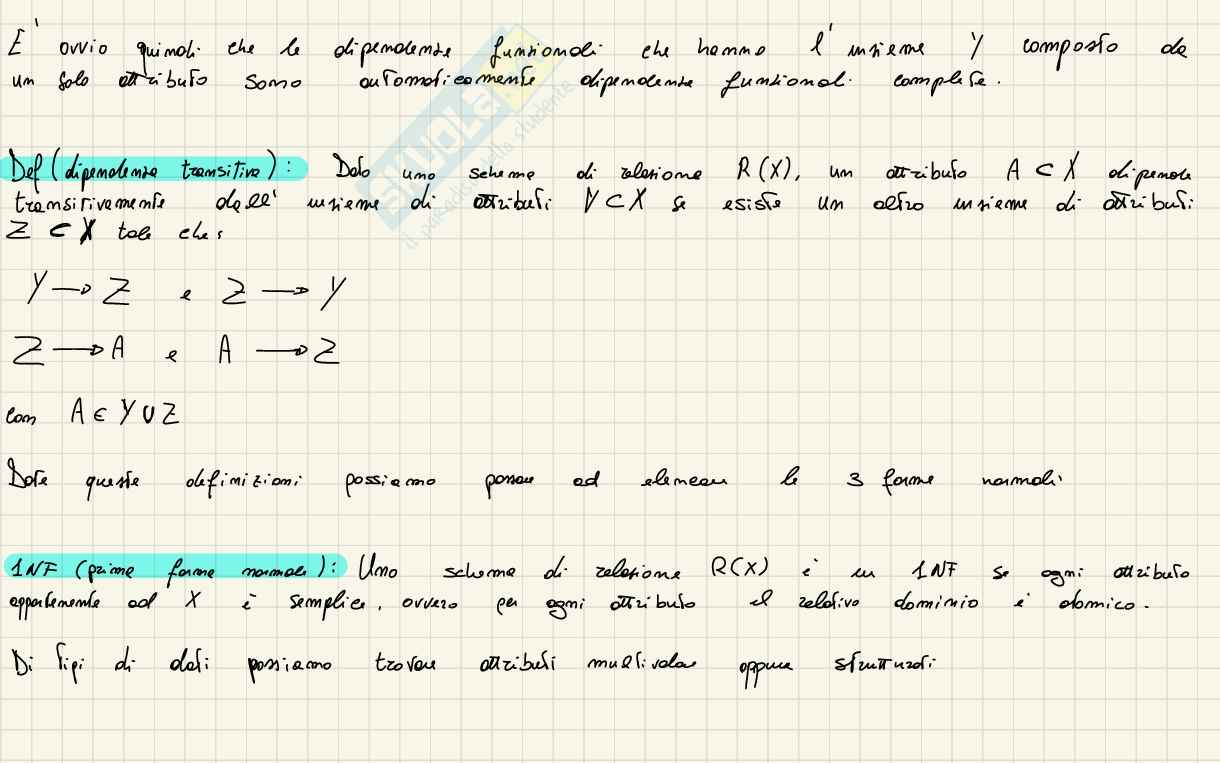 E' ovvio quindi che le dipendenze funzionali che hanno l'insieme Y composto da
un solo attributo sono automaticamente dipendenze funzionali complete.
Def (dipendenza transitiva): Dato uno schema di relazione R(X), un attributo A ⊂ X dipende
transitivamente dall'insieme di attributi Y ⊂ X se esiste un altro insieme di attributi
Z ⊂ X tale che:
Y → Z e Z → Y
Z → A e A → Z
con A ∈ Y ∪ Z
Date queste definizioni possiamo passare ad elencare le 3 forme normali:
1NF (prima forma normale): Uno schema di relazione R(X) è in 1NF se ogni attributo
appartenente ad X è semplice, ovvero per ogni attributo il relativo dominio è atomico.
Di tipi di dati possiamo trovare attributi multivalore oppure strutturati
SKUOLA.net
il paradiso dello studente